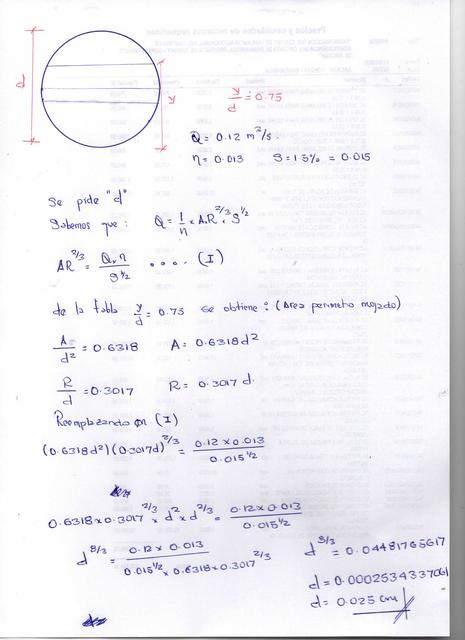 d
y
y/d = 0.75
Q = 0.12 m²/s.
n = 0.013 S = 1.5% = 0.015
Se pide "d"
Sabemos que: Q = 1/n × A.R^2/3 × S^1/2
AR^2/3 = Q×n / S^1/2 .... (I)
de la tabla y/d = 0.75 se obtiene: (Area perimetro mojado)
A/d² = 0.6318 A = 0.6318d²
R/d = 0.3017 R = 0.3017 d.
Reemplazando en (I)
(0.6318d²)(0.3017d)^2/3 = 0.12 × 0.013 / 0.015^1/2
0.6318×0.3017^2/3 × d² × d^2/3 = 0.12 × 0.013 / 0.015^1/2
d^8/3 = 0.12 × 0.013 / 0.015^1/2 × 0.6318 × 0.3017^2/3
d^8/3 = 0.04481765617
d = 0.0002534337061
d = 0.025 cm